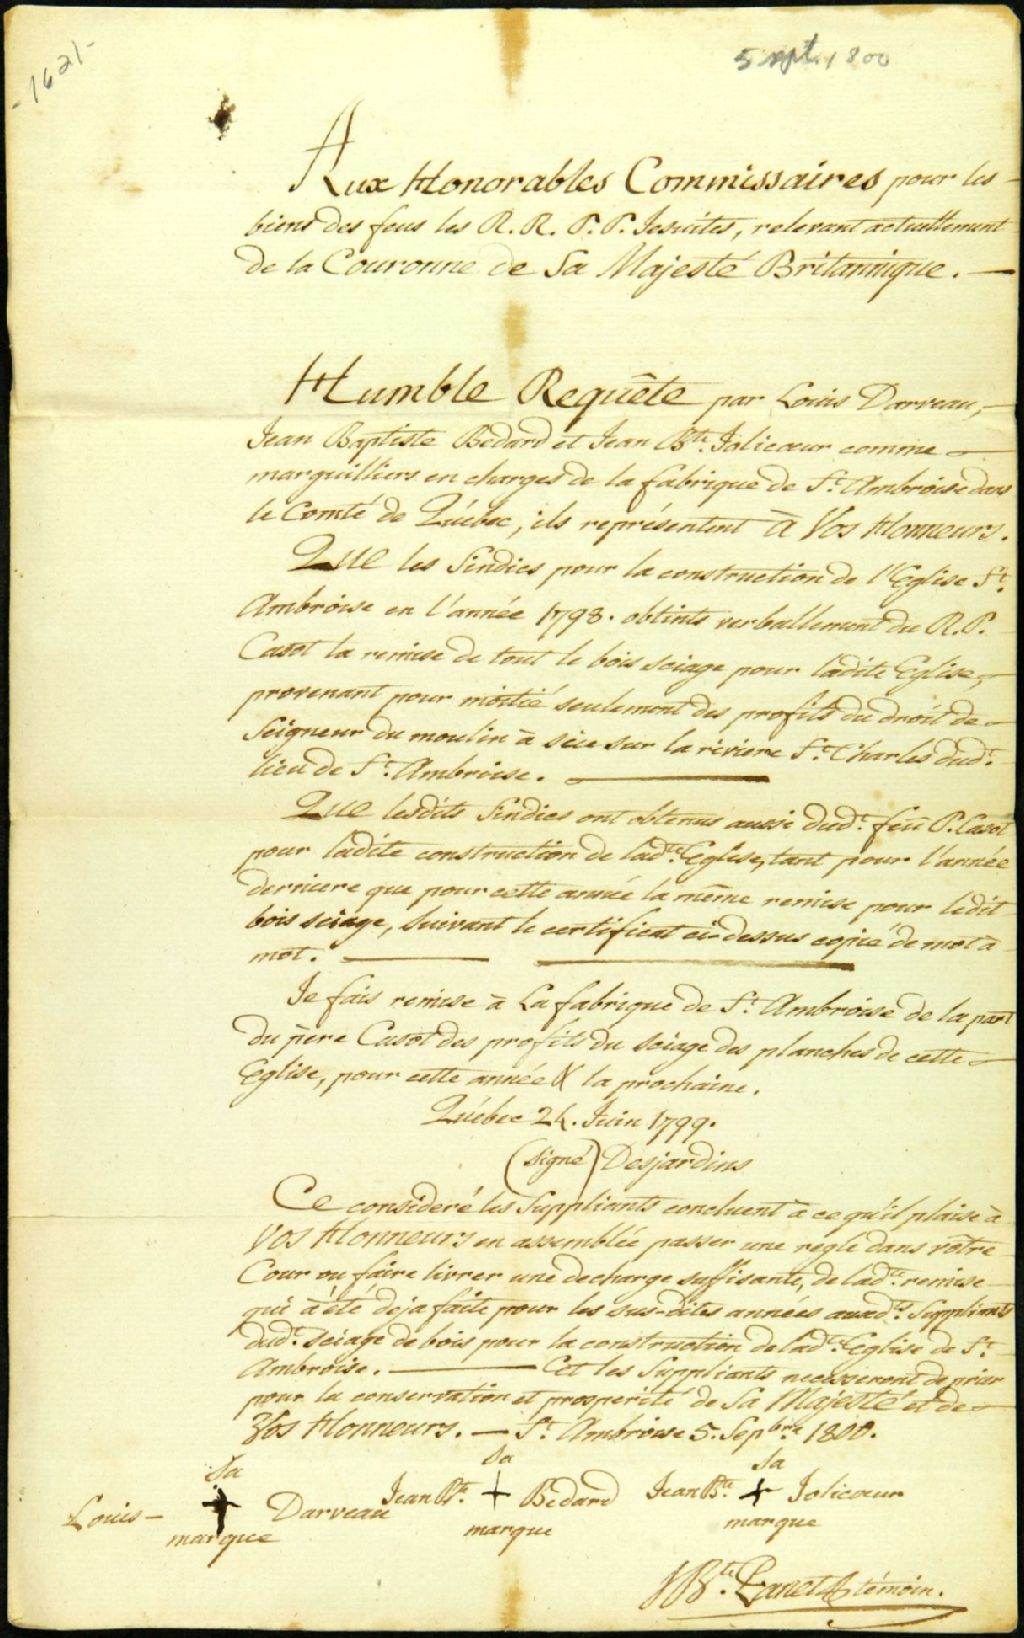 -1621-
5 sept. 1800
Aux Honorables Commissaires pour les
biens des feus les R. R. P. P. Jesuites, relevant actuellement
de la Couronne de Sa Majesté Britannique. —
Humble Requête par Louis Darveau,
Jean Baptiste Bedard et Jean Bte. Jolicœur comme
marguilliers en charges de la fabrique de St. Ambroise dans
le Comté de Québec, ils représentent à Vos Honneurs.
Que les Sindics pour la construction de l'Eglise St.
Ambroise en l'année 1798. obtints verballement du R. P.
Casot la remise de tout le bois sciage pour ladite Eglise,
provenant pour moitié seulement des profits du droit de
Seigneur du moulin à scie sur la riviere St. Charles dudt.
lieu de St. Ambroise. —
Que lesdits Sindics ont obtenus aussi dudt. feu P. Casot
pour ladite construction de ladte. Eglise, tant pour l'année
derniere que pour cette année la même remise pour ledit
bois sciage, suivant le certificat ci-dessus copié de mot à
mot. —
Je fais remise à La fabrique de St. Ambroise de la part
du père Casot des profits du sciage des planches de cette
Eglise, pour cette année & la prochaine.
Québec 24. Juin 1799.
(signé) Desjardins
Ce consideré les Suppliants concluent à ce qu'il plaise à
Vos Honneurs en assemblée passer une regle dans votre
Cour ou faire livrer une decharge suffisante, de ladte. remise
qui à été deja faite pour les sus-dites années auxdts. Suppliants
dudt. sciage de bois pour la construction de ladte. Eglise de St.
Ambroise. — Et les Suppliants necesseront de prier
pour la conservation et prosperité de Sa Majesté et de
Vos Honneurs. — St. Ambroise 5. Sepbre. 1800.
Sa Sa Sa
Louis + Darveau Jean Bte. + Bedard Jean Bte. + Jolicœur
marque marque marque
JBte. Panet témoin.